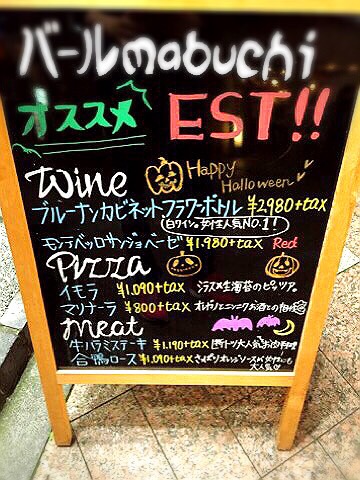 バールmabuchi
オススメ EST!!
Wine Happy
Halloween
ブルーナンカビネットフラワーボトル ¥2,980+tax
白ワイン女性人気NO.1!
モンテベッロサンジョベーゼ ¥1,980+tax Red
Pizza
イモラ ¥1,090+tax シラスと生海苔のピッツァ。
マリナーラ ¥800+tax オレガノとニンニクお酒との相性
meat
牛ハラミステーキ ¥1,190+tax 大人気お肉料理
合鴨ロース ¥1,090+tax さっぱりオレンジソースが
大人気